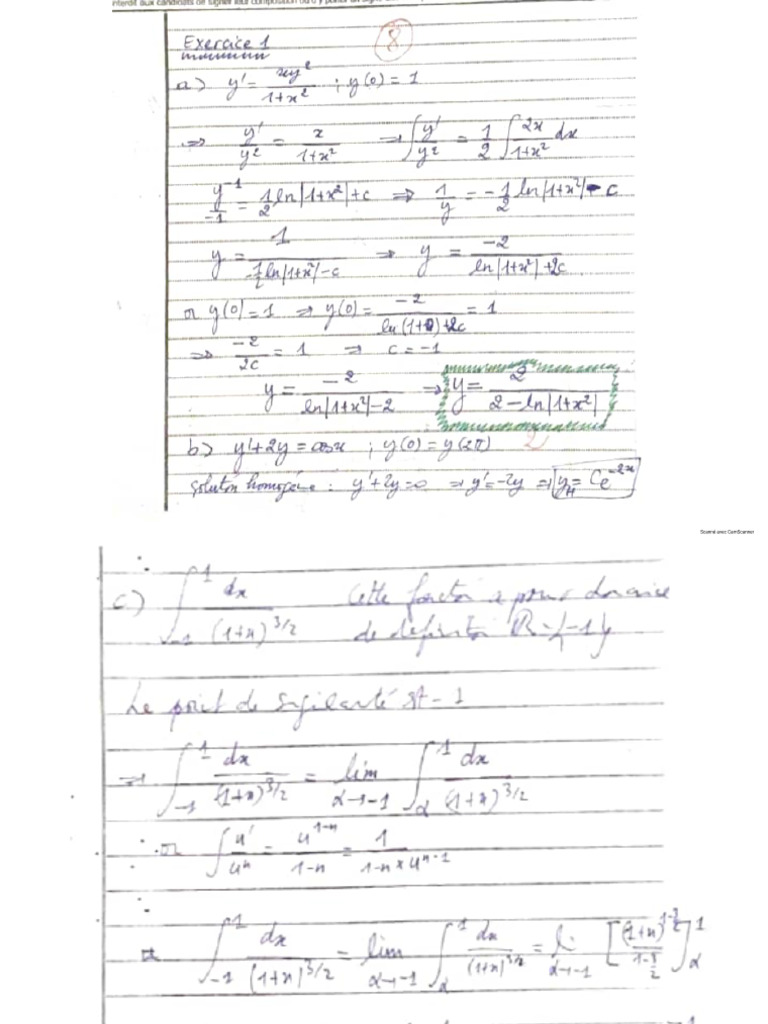 interdit aux candidats de signer leur composition ou d'y
Exercice 1
8
a) y' = xy² / (1+x²) ; y(0) = 1
⇒ y'/y² = x/(1+x²) ⇒ ∫ y'/y² = 1/2 ∫ 2x/(1+x²) dx
y⁻¹/-1 = 1/2 ln|1+x²| + c ⇒ 1/y = -1/2 ln|1+x²| - c
y = 1 / (-1/2 ln|1+x²| - c) → y = -2 / (ln|1+x²| + 2c)
or y(0) = 1 ⇒ y(0) = -2 / (ln(1+0) + 2c) = 1
⇒ -2/2c = 1 ⇒ c = -1
y = -2 / (ln|1+x²| - 2) ⇒ y = 2 / (2 - ln|1+x²|)
2
b) y' + 2y = cos x ; y(0) = y(2π)
Solution homogène : y' + 2y = 0 ⇒ y' = -2y ⇒ y_H = Ce^(-2x)
Scanné avec CamScanner
c) ∫_{-1}^{1} dx / (1+x)^{3/2} Cette fonction a pour domaine
de definition R-{-1}
Le point de sigilarité st -1
⇒ ∫_{-1}^{1} dx / (1+x)^{3/2} = lim_{α→-1} ∫_{α}^{1} dx / (1+x)^{3/2}
or ∫ u'/uⁿ = u^{1-n} / (1-n) = 1 / (1-n × u^{n-1})
∫_{-1}^{1} dx / (1+x)^{3/2} = lim_{α→-1} ∫_{α}^{1} dx / (1+x)^{3/2} = li_{α→-1} [(1+x)^{1-3/2} / (1-3/2)]_{α}^{1}